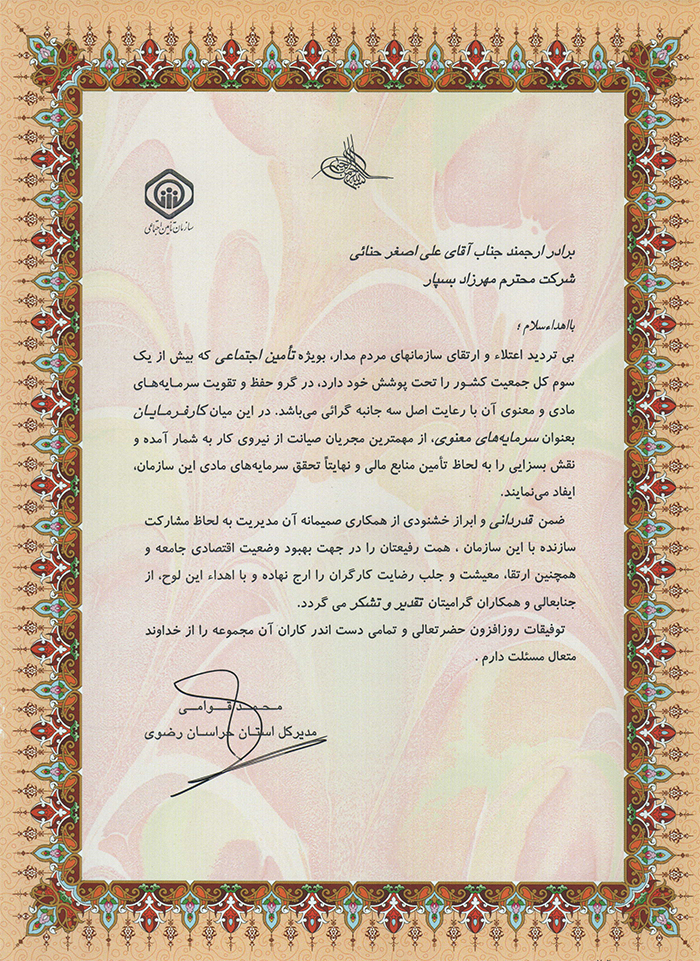 سازمان تأمین اجتماعی
برادر ارجمند جناب آقای علی اصغر حنائی
شرکت محترم مهرزاد بسپار
بااهداءسلام ؛
بی تردید اعتلاء و ارتقای سازمانهای مردم مدار، بویژه تأمین اجتماعی که بیش از یک
سوم کل جمعیت کشور را تحت پوشش خود دارد، در گرو حفظ و تقویت سرمایه‌های
مادی و معنوی آن با رعایت اصل سه جانبه گرائی می‌باشد. در این میان کارفرمایان
بعنوان سرمایه‌های معنوی، از مهمترین مجریان صیانت از نیروی کار به شمار آمده و
نقش بسزایی را به لحاظ تأمین منابع مالی و نهایتاً تحقق سرمایه‌های مادی این سازمان،
ایفاد می‌نمایند.
ضمن قدردانی و ابراز خشنودی از همکاری صمیمانه آن مدیریت به لحاظ مشارکت
سازنده با این سازمان ، همت رفیعتان را در جهت بهبود وضعیت اقتصادی جامعه و
همچنین ارتقا، معیشت و جلب رضایت کارگران را ارج نهاده و با اهداء این لوح، از
جنابعالی و همکاران گرامیتان تقدیر و تشکر می گردد.
توفیقات روزافزون حضرتعالی و تمامی دست اندر کاران آن مجموعه را از خداوند
متعال مسئلت دارم .
محمد قوامی
مدیرکل استان خراسان رضوی